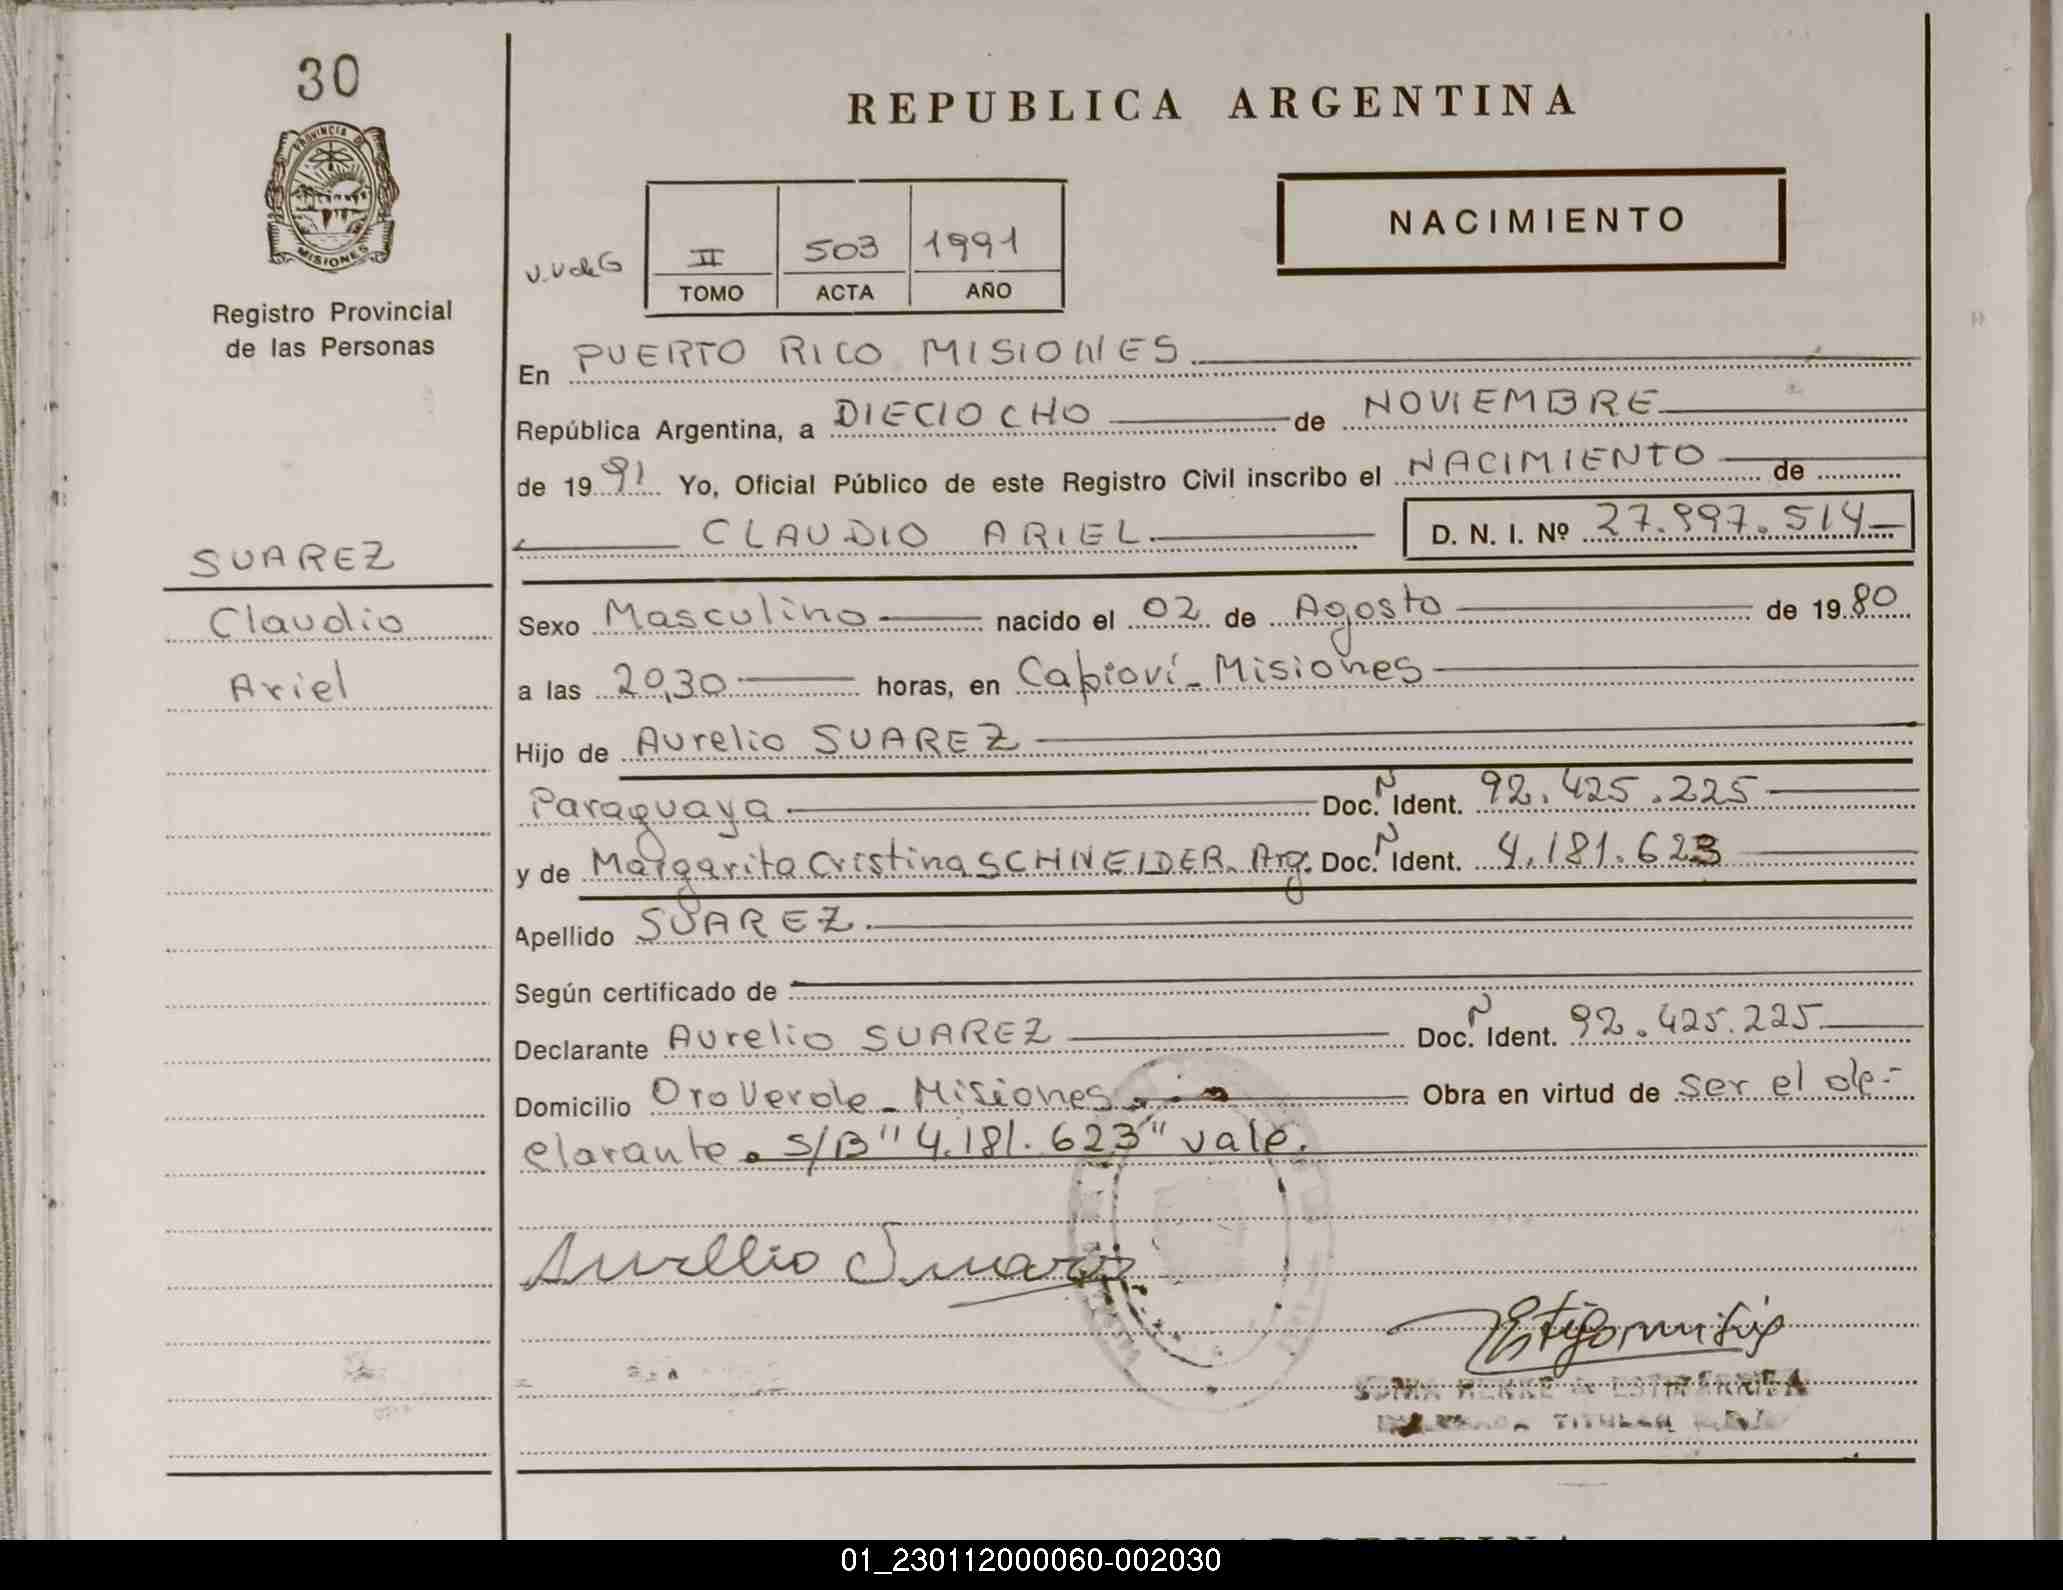 30
PROVINCIA DE
MISIONES
Registro Provincial
de las Personas
REPUBLICA ARGENTINA
NACIMIENTO
V.V de G
II 503 1991
TOMO ACTA AÑO
En PUERTO RICO MISIONES
República Argentina, a DIECIOCHO de NOVIEMBRE
de 1991 Yo, Oficial Público de este Registro Civil inscribo el NACIMIENTO de
CLAUDIO ARIEL D. N. I. Nº 27.997.514
SUAREZ
Claudio
Ariel
Sexo Masculino nacido el 02 de Agosto de 1980
a las 20,30 horas, en Capioví - Misiones
Hijo de Aurelio SUAREZ
Paraguaya Doc. N Ident. 92.425.225
y de Margarita Cristina SCHNEIDER. Arg. Doc. N Ident. 4.181.623
Apellido SUAREZ
Según certificado de
Declarante Aurelio SUAREZ Doc. N Ident. 92.425.225
Domicilio Oro Verde - Misiones Obra en virtud de ser el de-
clarante. S/B "4.181.623" vale.
Aurellio Suarez
TITULAR
ARGENTINA
01_230112000060-002030